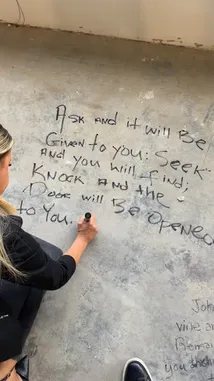 Ask and it will Be
Given to you: Seek
and you will find;
Knock and the
Door will Be opened
to You.
John
vine an
Remain